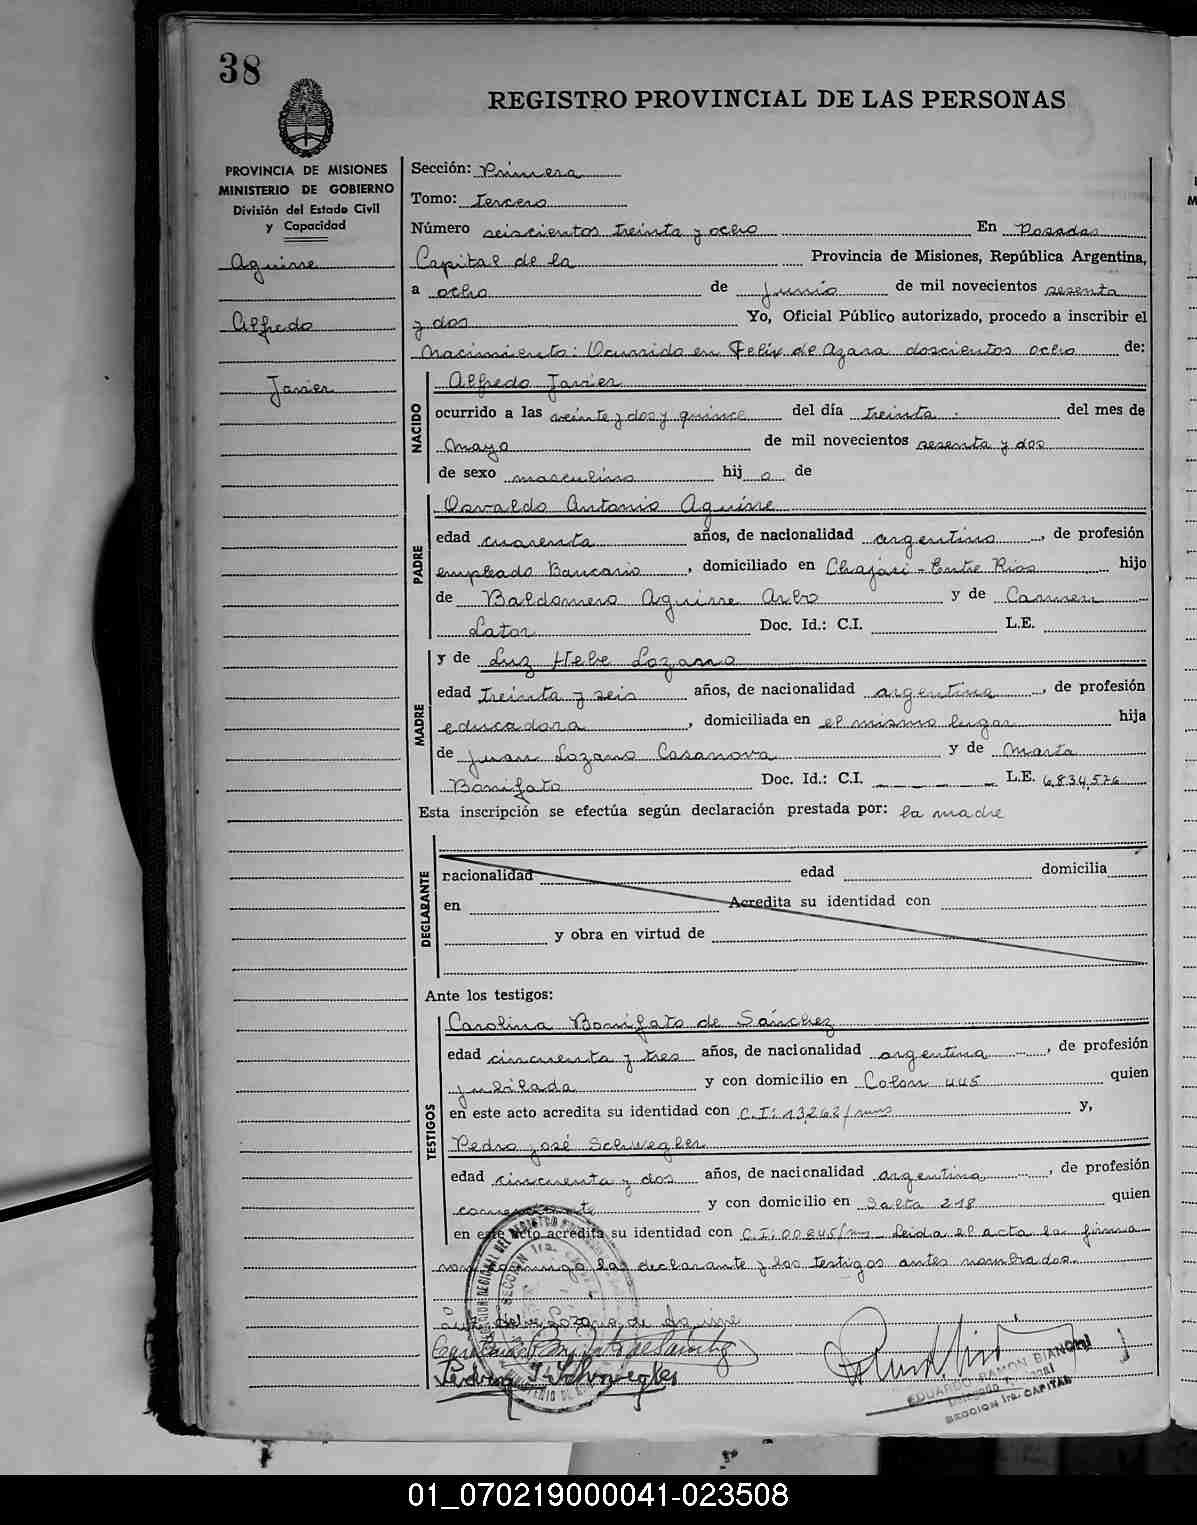 38
REGISTRO PROVINCIAL DE LAS PERSONAS
PROVINCIA DE MISIONES
MINISTERIO DE GOBIERNO
División del Estado Civil
y Capacidad
Aguirre
Alfredo
Javier
Sección: Primera
Tomo: tercero
Número seiscientos treinta y ocho En Posadas
Capital de la Provincia de Misiones, República Argentina,
a ocho de junio de mil novecientos sesenta
y dos Yo, Oficial Público autorizado, procedo a inscribir el
Nacimiento: Ocurrido en Felix de Azara doscientos ocho de:
NACIDO
Alfredo Javier
ocurrido a las veinte y dos y quince del día treinta del mes de
Mayo de mil novecientos sesenta y dos
de sexo masculino hij o de
PADRE
Osvaldo Antonio Aguirre
edad cuarenta años, de nacionalidad argentino, de profesión
empleado Bancario, domiciliado en Chajari - Entre Rios hijo
de Baldomero Aguirre Arbo y de Carmen
Lator Doc. Id.: C.I. L.E.
MADRE
y de Luz Hebe Lozano
edad treinta y seis años, de nacionalidad argentina, de profesión
educadora, domiciliada en el mismo lugar hija
de Juan Lozano Casanova y de Marta
Bonifato Doc. Id.: C.I. L.E. 6,834,576
Esta inscripción se efectúa según declaración prestada por: la madre
DECLARANTE
nacionalidad edad domicilia
en Acredita su identidad con
y obra en virtud de
Ante los testigos:
TESTIGOS
Carolina Bonifato de Sánchez
edad cincuenta y tres años, de nacionalidad argentina, de profesión
jubilada y con domicilio en Colon 445 quien
en este acto acredita su identidad con C.I: 13,262/mns y,
Pedro José Schwegler
edad cincuenta y dos años, de nacionalidad argentina, de profesión
y con domicilio en Salta 218 quien
en este acto acredita su identidad con C.I: Leida el acta la firma
conmigo la declarante y los testigos antes nombrados.
Pedro J. Schwegler
EDUARDO RAMON BIANCHI
SECCION 1ra. CAPITAL
01_070219000041-023508